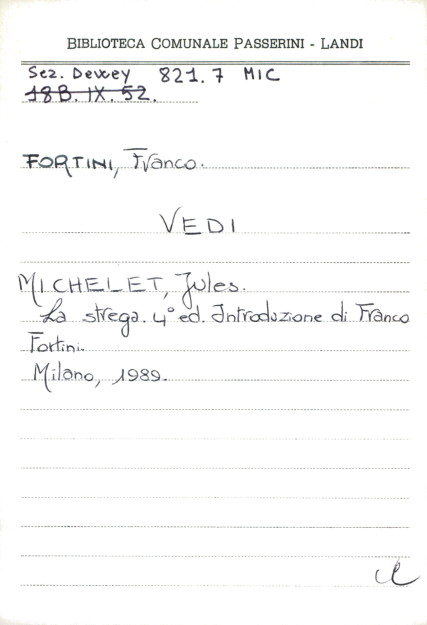 BIBLIOTECA COMUNALE PASSERINI - LANDI
Sez. Dewey 821.7 MIC
18B. IX. 52.
FORTINI, Franco.
VEDI
MICHELET, Jules.
La strega. 4° ed. Introduzione di Franco
Fortini.
Milano, 1989.